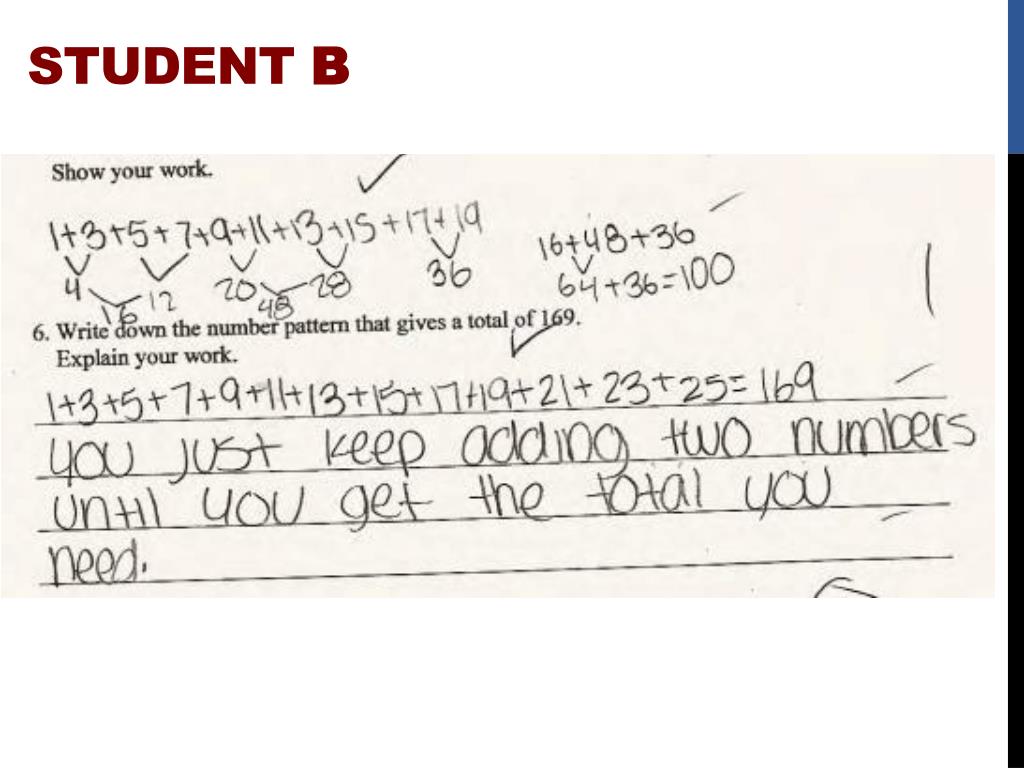 STUDENT B
Show your work.
1+3+5+7+9+11+13+15+17+19
16+48+36
4 12 20 28 36
64+36=100
16 48
6. Write down the number pattern that gives a total of 169.
Explain your work.
1+3+5+7+9+11+13+15+17+19+21+23+25=169
you just keep adding two numbers
until you get the total you
need.